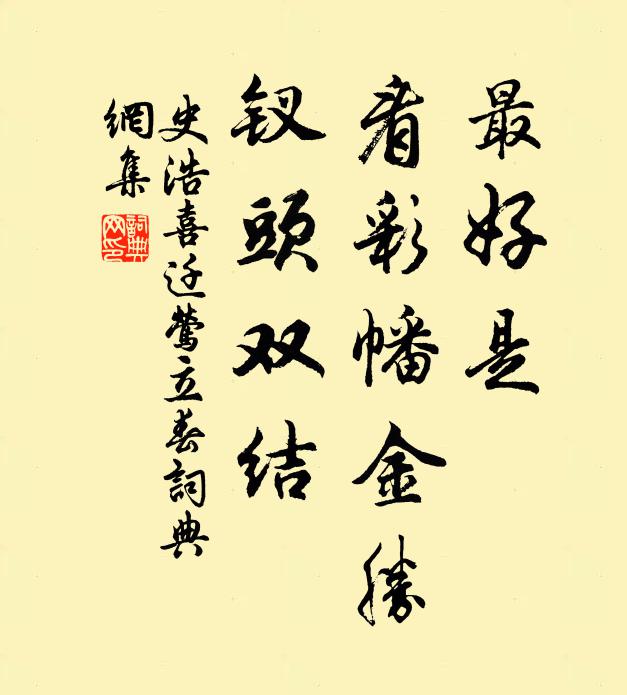 最好是
看彩幡金勝
钗頭双结
史浩喜迁鶯立春詞典
網集
詞典网印